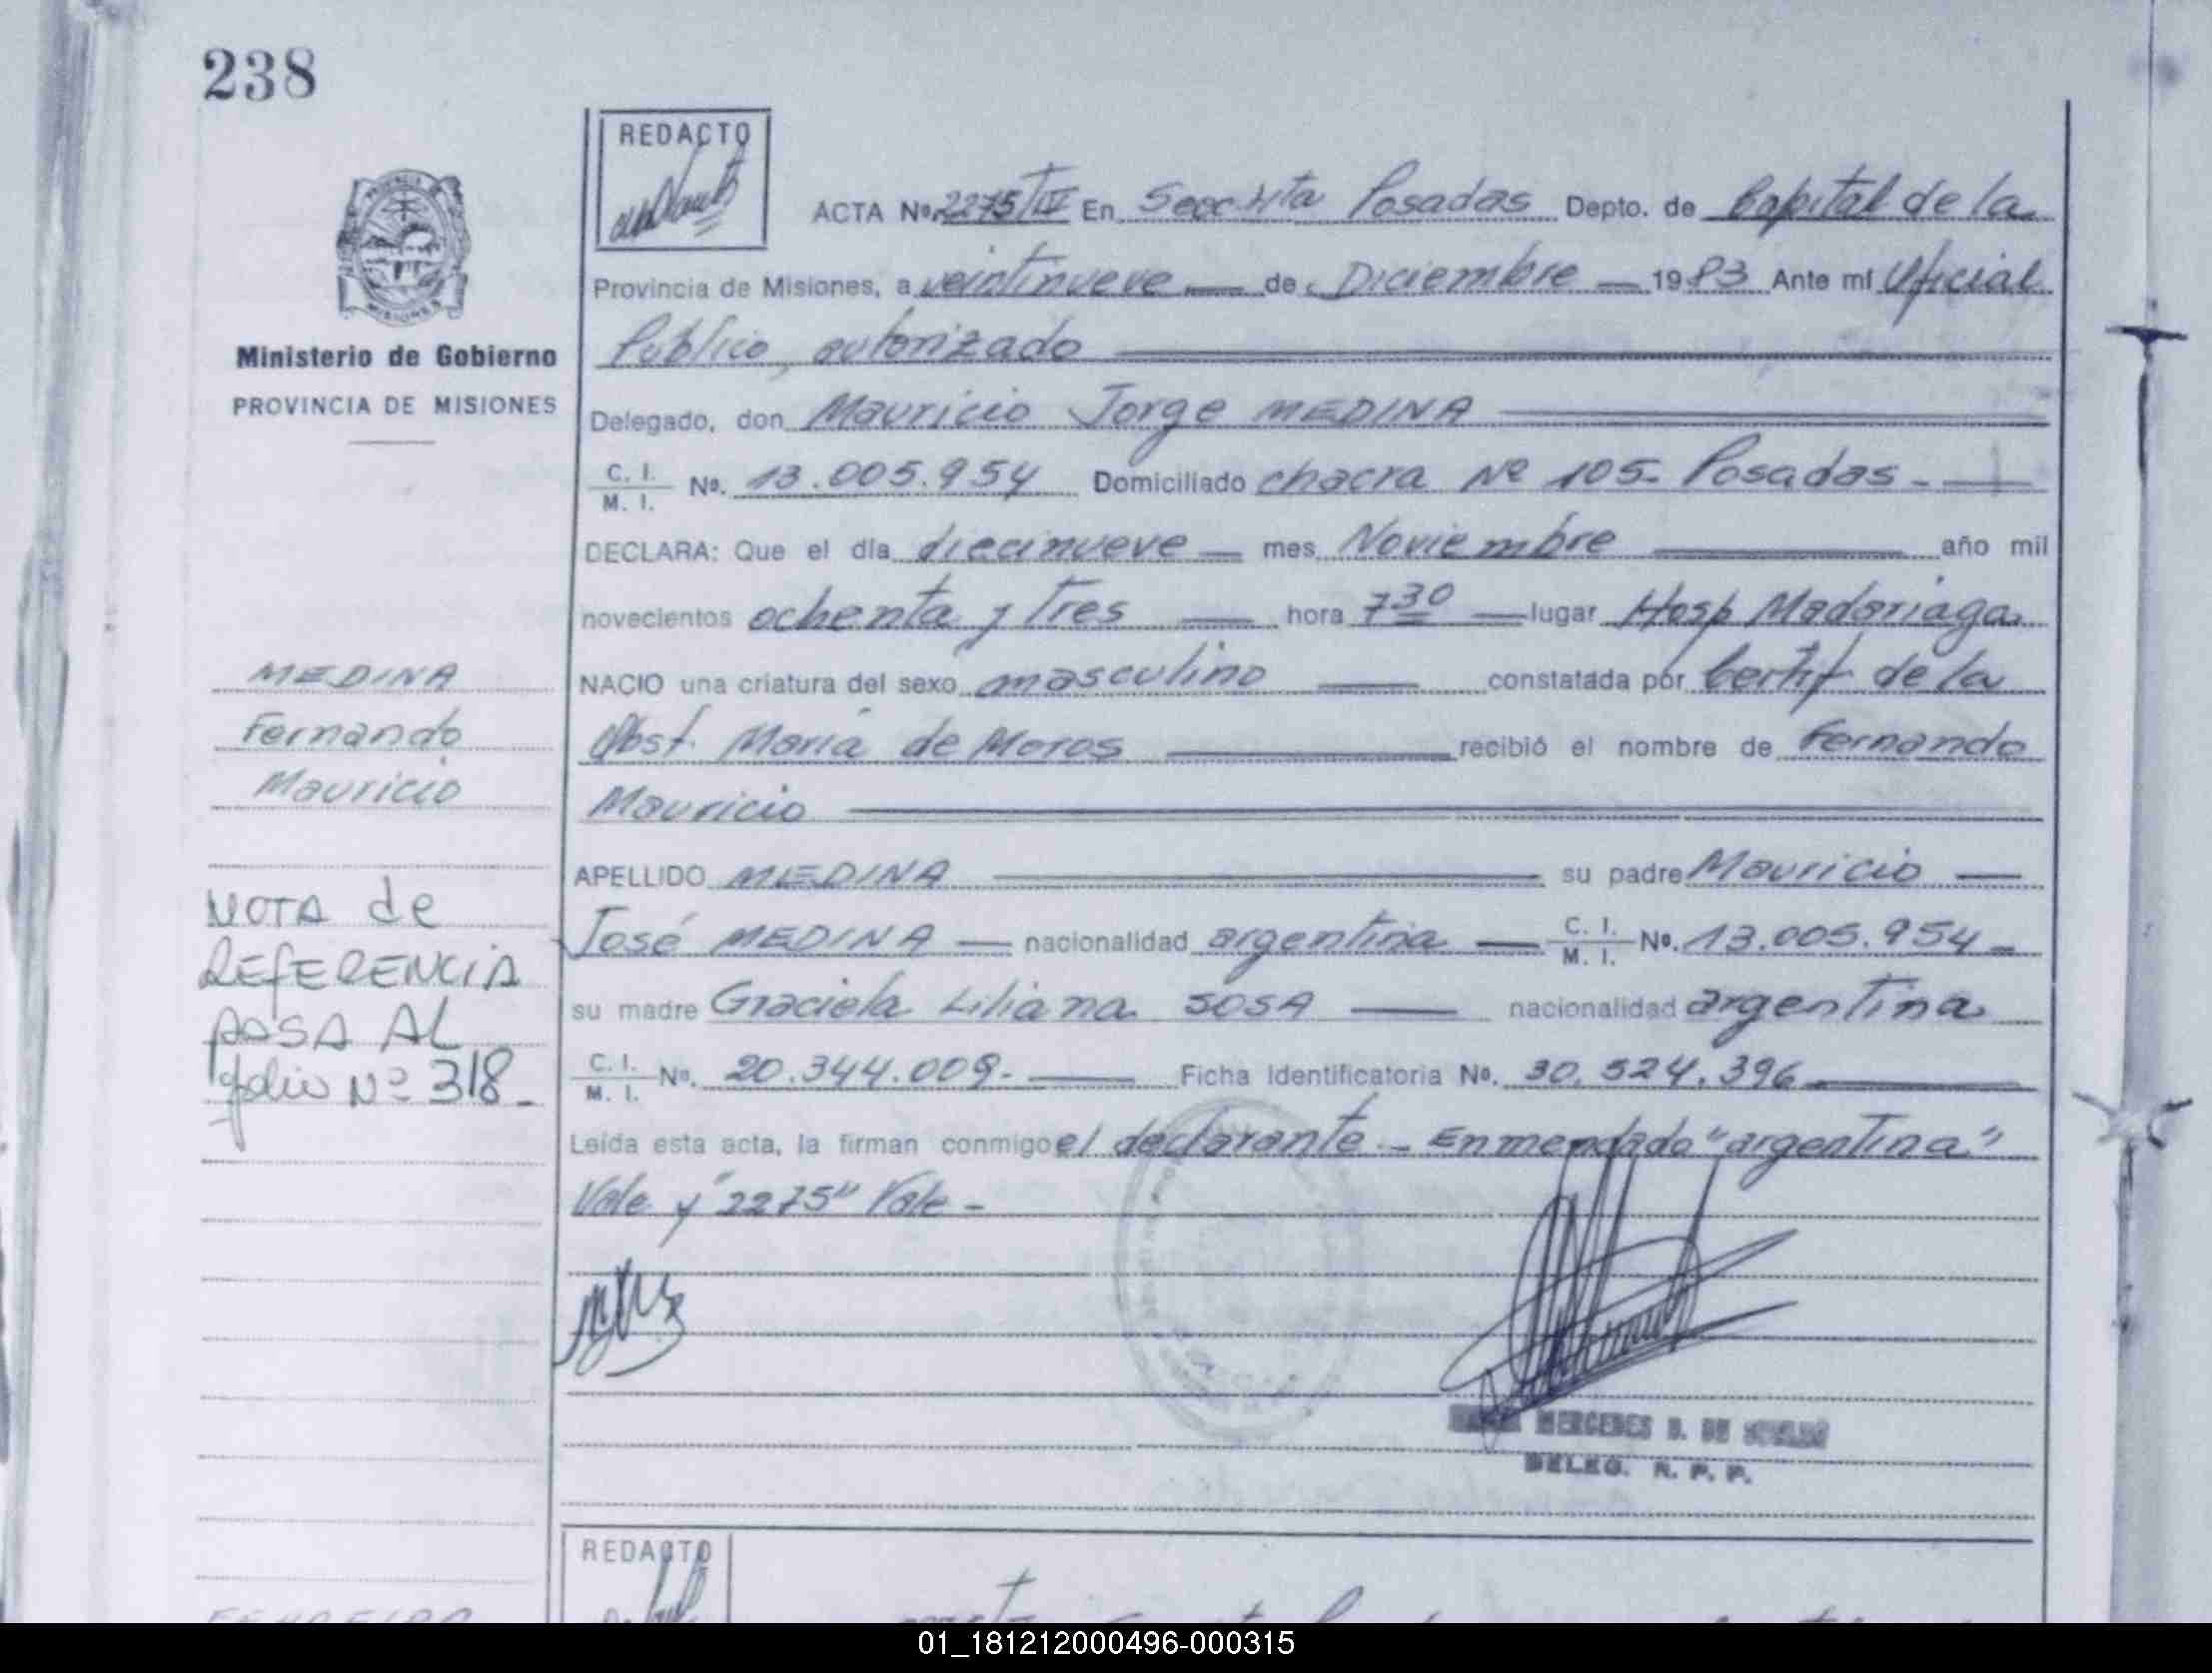 238
REDACTO
PROVINCIA DE
MISIONES
Ministerio de Gobierno
PROVINCIA DE MISIONES
ACTA Nº 2275/IV En Secc. 4ta Posadas Depto. de Capital de la
Provincia de Misiones, a veintinueve — de Diciembre — 1983 Ante mí Oficial
Público, autorizado
Delegado, don Mauricio Jorge MEDINA
C. I. / M. I. Nº. 13.005.954 Domiciliado chacra Nº 105- Posadas -
DECLARA: Que el día diecinueve — mes Noviembre — año mil
novecientos ochenta y tres — hora 7 30 — lugar Hosp Madariaga
NACIO una criatura del sexo masculino — constatada por Certif de la
Obst. María de Moros — recibió el nombre de Fernando
Mauricio
APELLIDO MEDINA — su padre Mauricio —
José MEDINA — nacionalidad argentina — C. I. / M. I. Nº. 13.005.954 -
su madre Graciela Liliana SOSA — nacionalidad argentina
C. I. / M. I. Nº. 20.344.009.- — Ficha Identificatoria Nº. 30.524.396
Leída esta acta, la firman conmigo el declarante - Enmendado "argentina"
Vale y "2275" Vale -
MEDINA
Fernando
Mauricio
NOTA de
REFERENCIA
PASA AL
folio Nº 318 -
MERCEDES
DELEG. R. P. P.
REDACTO
01_181212000496-000315